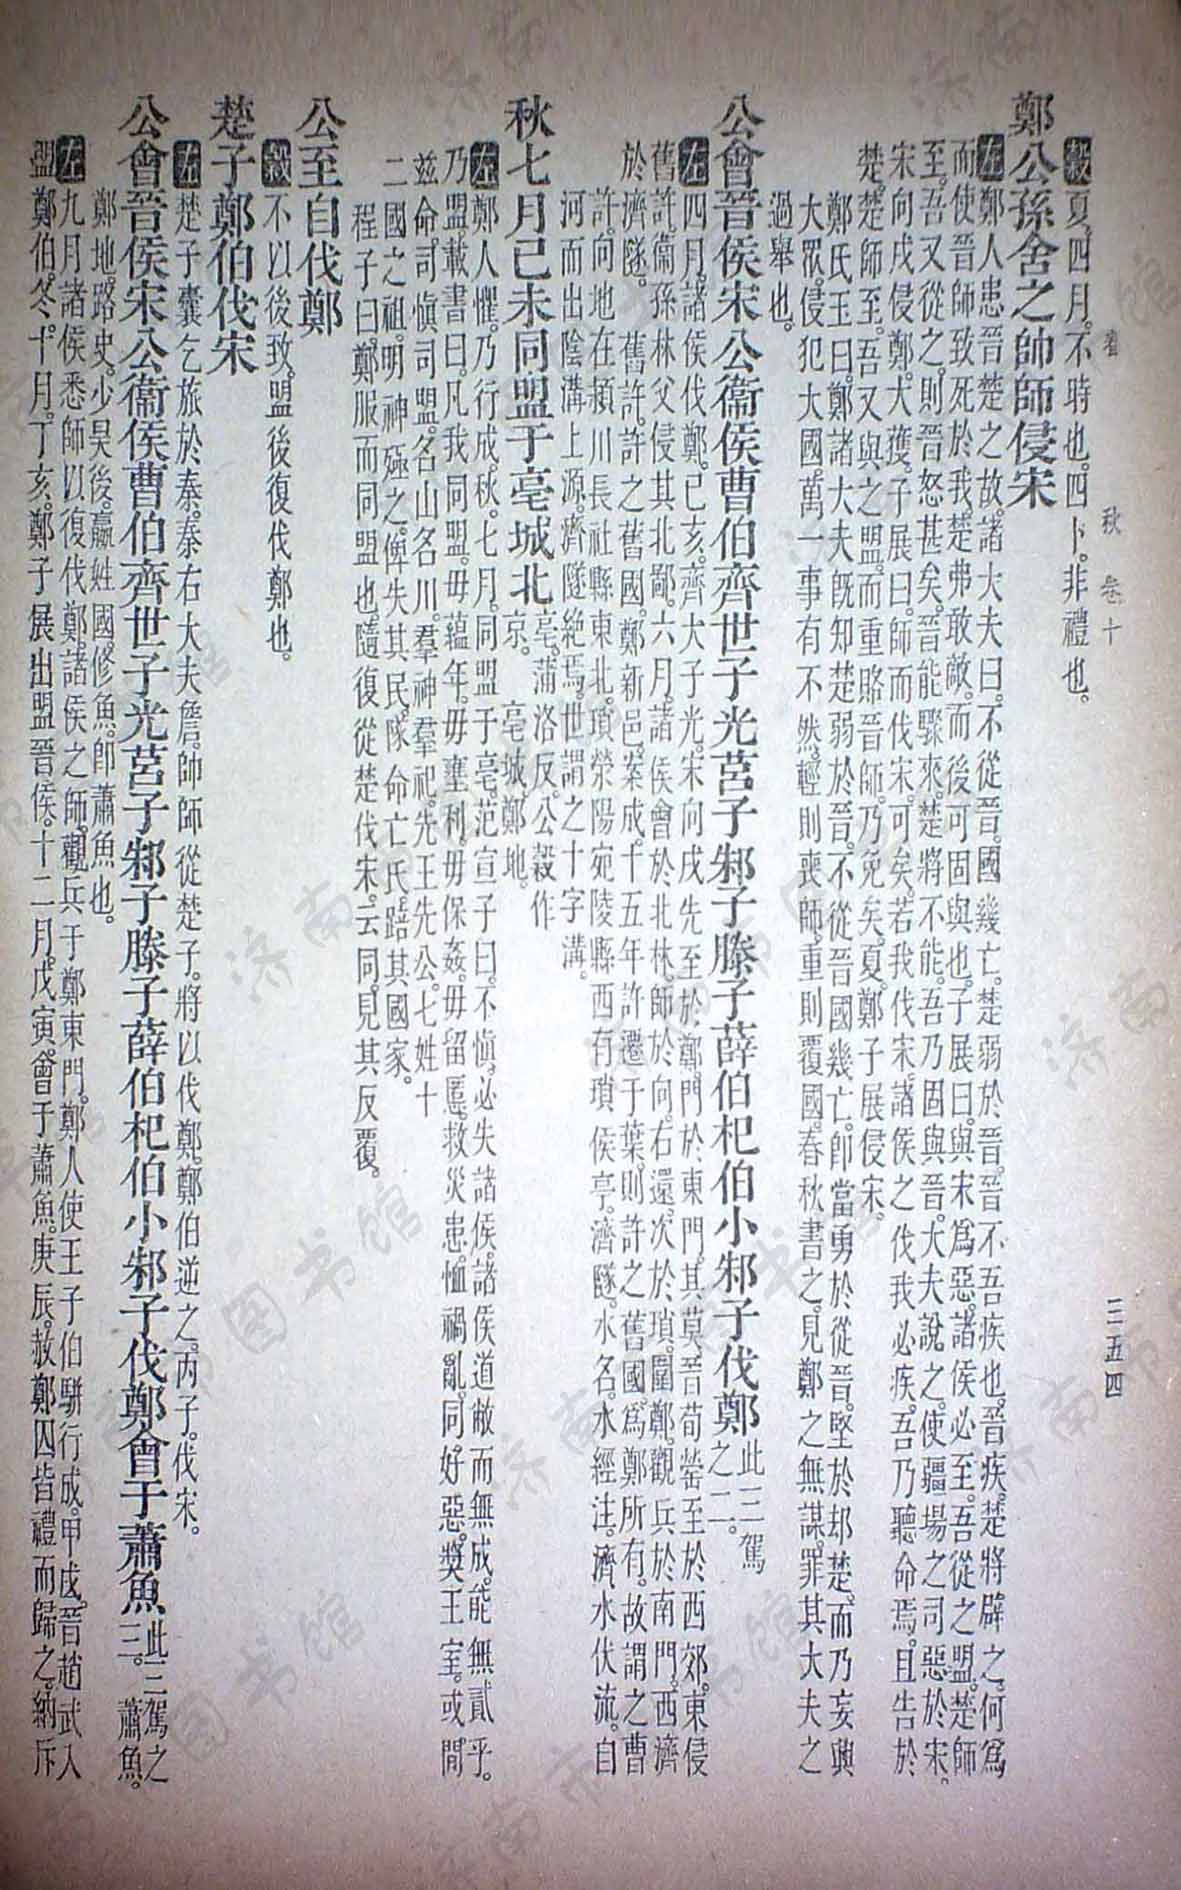 春秋 卷十 三五四
穀夏四月。不時也。四卜。非禮也。
鄭公孫舍之帥師侵宋
左鄭人患晉楚之故。諸大夫曰。不從晉。國幾亡。楚弱於晉。晉不吾疾也。晉疾。楚將辟之。何爲
而使晉師致死於我。楚弗敢敵。而後可固與也。子展曰。與宋爲惡。諸侯必至。吾從之盟。楚師
至。吾又從之。則晉怒甚矣。晉能驟來。楚將不能。吾乃固與晉。大夫說之。使疆埸之司惡於宋。
宋向戌侵鄭。大獲。子展曰。師而伐宋可矣。若我伐宋。諸侯之伐我必疾。吾乃聽命焉。且告於
楚。楚師至。吾又與之盟。而重賂晉師。乃免矣。夏。鄭子展侵宋。
鄭氏玉曰。鄭諸大夫旣知楚弱於晉。不從晉國幾亡。卽當勇於從晉。堅於却楚。而乃妄興
大眾。侵犯大國。萬一事有不然。輕則喪師。重則覆國。春秋書之。見鄭之無謀。罪其大夫之
過舉也。
公會晉侯宋公衞侯曹伯齊世子光莒子邾子滕子薛伯杞伯小邾子伐鄭此三駕之二。
左四月。諸侯伐鄭。己亥。齊大子光。宋向戌先至於鄭。門於東門。其莫晉荀罃至於西郊。東侵
舊許。衞孫林父侵其北鄙。六月。諸侯會於北林。師於向。右還。次於瑣。圍鄭。觀兵於南門。西濟
於濟隧。 舊許。許之舊國。鄭新邑。案成十五年許遷于葉。則許之舊國爲鄭所有。故謂之曹
許。向地在潁川長社縣東北。瑣滎陽宛陵縣西有瑣侯亭。濟隧。水名。水經注。濟水伏流。自
河而出陰溝上源。濟隧絶焉。世謂之十字溝。
秋七月己未同盟于亳城北亳。蒲洛反。公穀作京。 亳城鄭地。
左鄭人懼。乃行成。秋。七月。同盟于亳。范宣子曰。不愼。必失諸侯。諸侯道敝而無成。能無貳乎。
乃盟。載書曰。凡我同盟。毋蘊年。毋壅利。毋保姦。毋留慝。救災患。恤禍亂。同好惡。奬王室。或閒
兹命。司愼。司盟。名山名川。羣神羣祀。先王先公。七姓十
二國之祖。明神殛之。俾失其民。隊命亡氏。踣其國家。
程子曰。鄭服而同盟也。隨復從楚伐宋。云同。見其反覆。
公至自伐鄭
穀不以後致。盟後復伐鄭也。
楚子鄭伯伐宋
左楚子囊乞旅於秦。秦右大夫詹。帥師從楚子。將以伐鄭。鄭伯逆之。丙子。伐宋。
公會晉侯宋公衞侯曹伯齊世子光莒子邾子滕子薛伯杞伯小邾子伐鄭會于蕭魚此三駕之三。 蕭魚。
鄭地。路史。少昊後。嬴姓國。修魚。卽蕭魚也。
左九月。諸侯悉師以復伐鄭。諸侯之師。觀兵于鄭東門。鄭人使王子伯駢行成。甲戌。晉趙武入
盟鄭伯。冬。十月。丁亥。鄭子展出盟晉侯。十二月。戊寅。會于蕭魚。庚辰。赦鄭囚皆禮而歸之。納斥